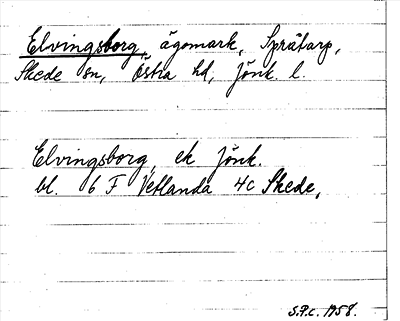 Elvingsborg, ägomark, Språtarp,
Skede sn, Östra hd, Jönk. l.
Elvingsborg, ek Jönk.
bl. 6 F Vetlanda 4c Skede,
S.P.c. 1958.